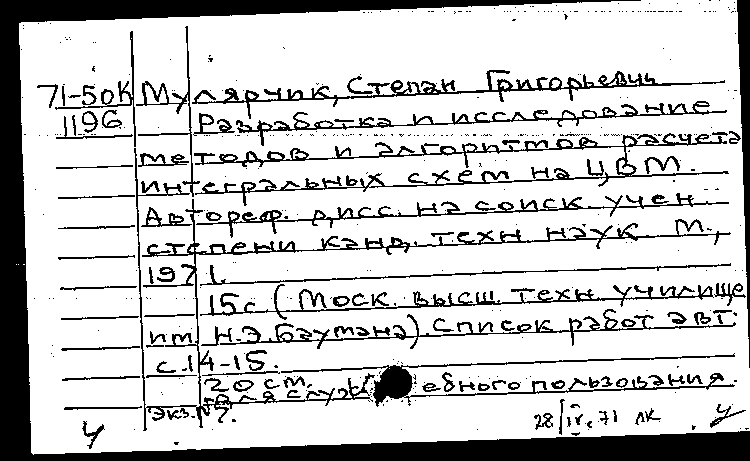 71-50к Мулярчик, Степан Григорьевич
1196 Разработка и исследование
методов и алгоритмов расчета
интегральных схем на ЦВМ.
Автореф. дисс. на соиск. учен.
степени канд. техн. наук. М.,
1971.
15с (Моск. высш. техн. училище
им. Н.Э.Баумана). Список работ авт.
с.14-15.
20 см.
Для служебного пользования.
Экз.№7.
28/IV.71 ЛК